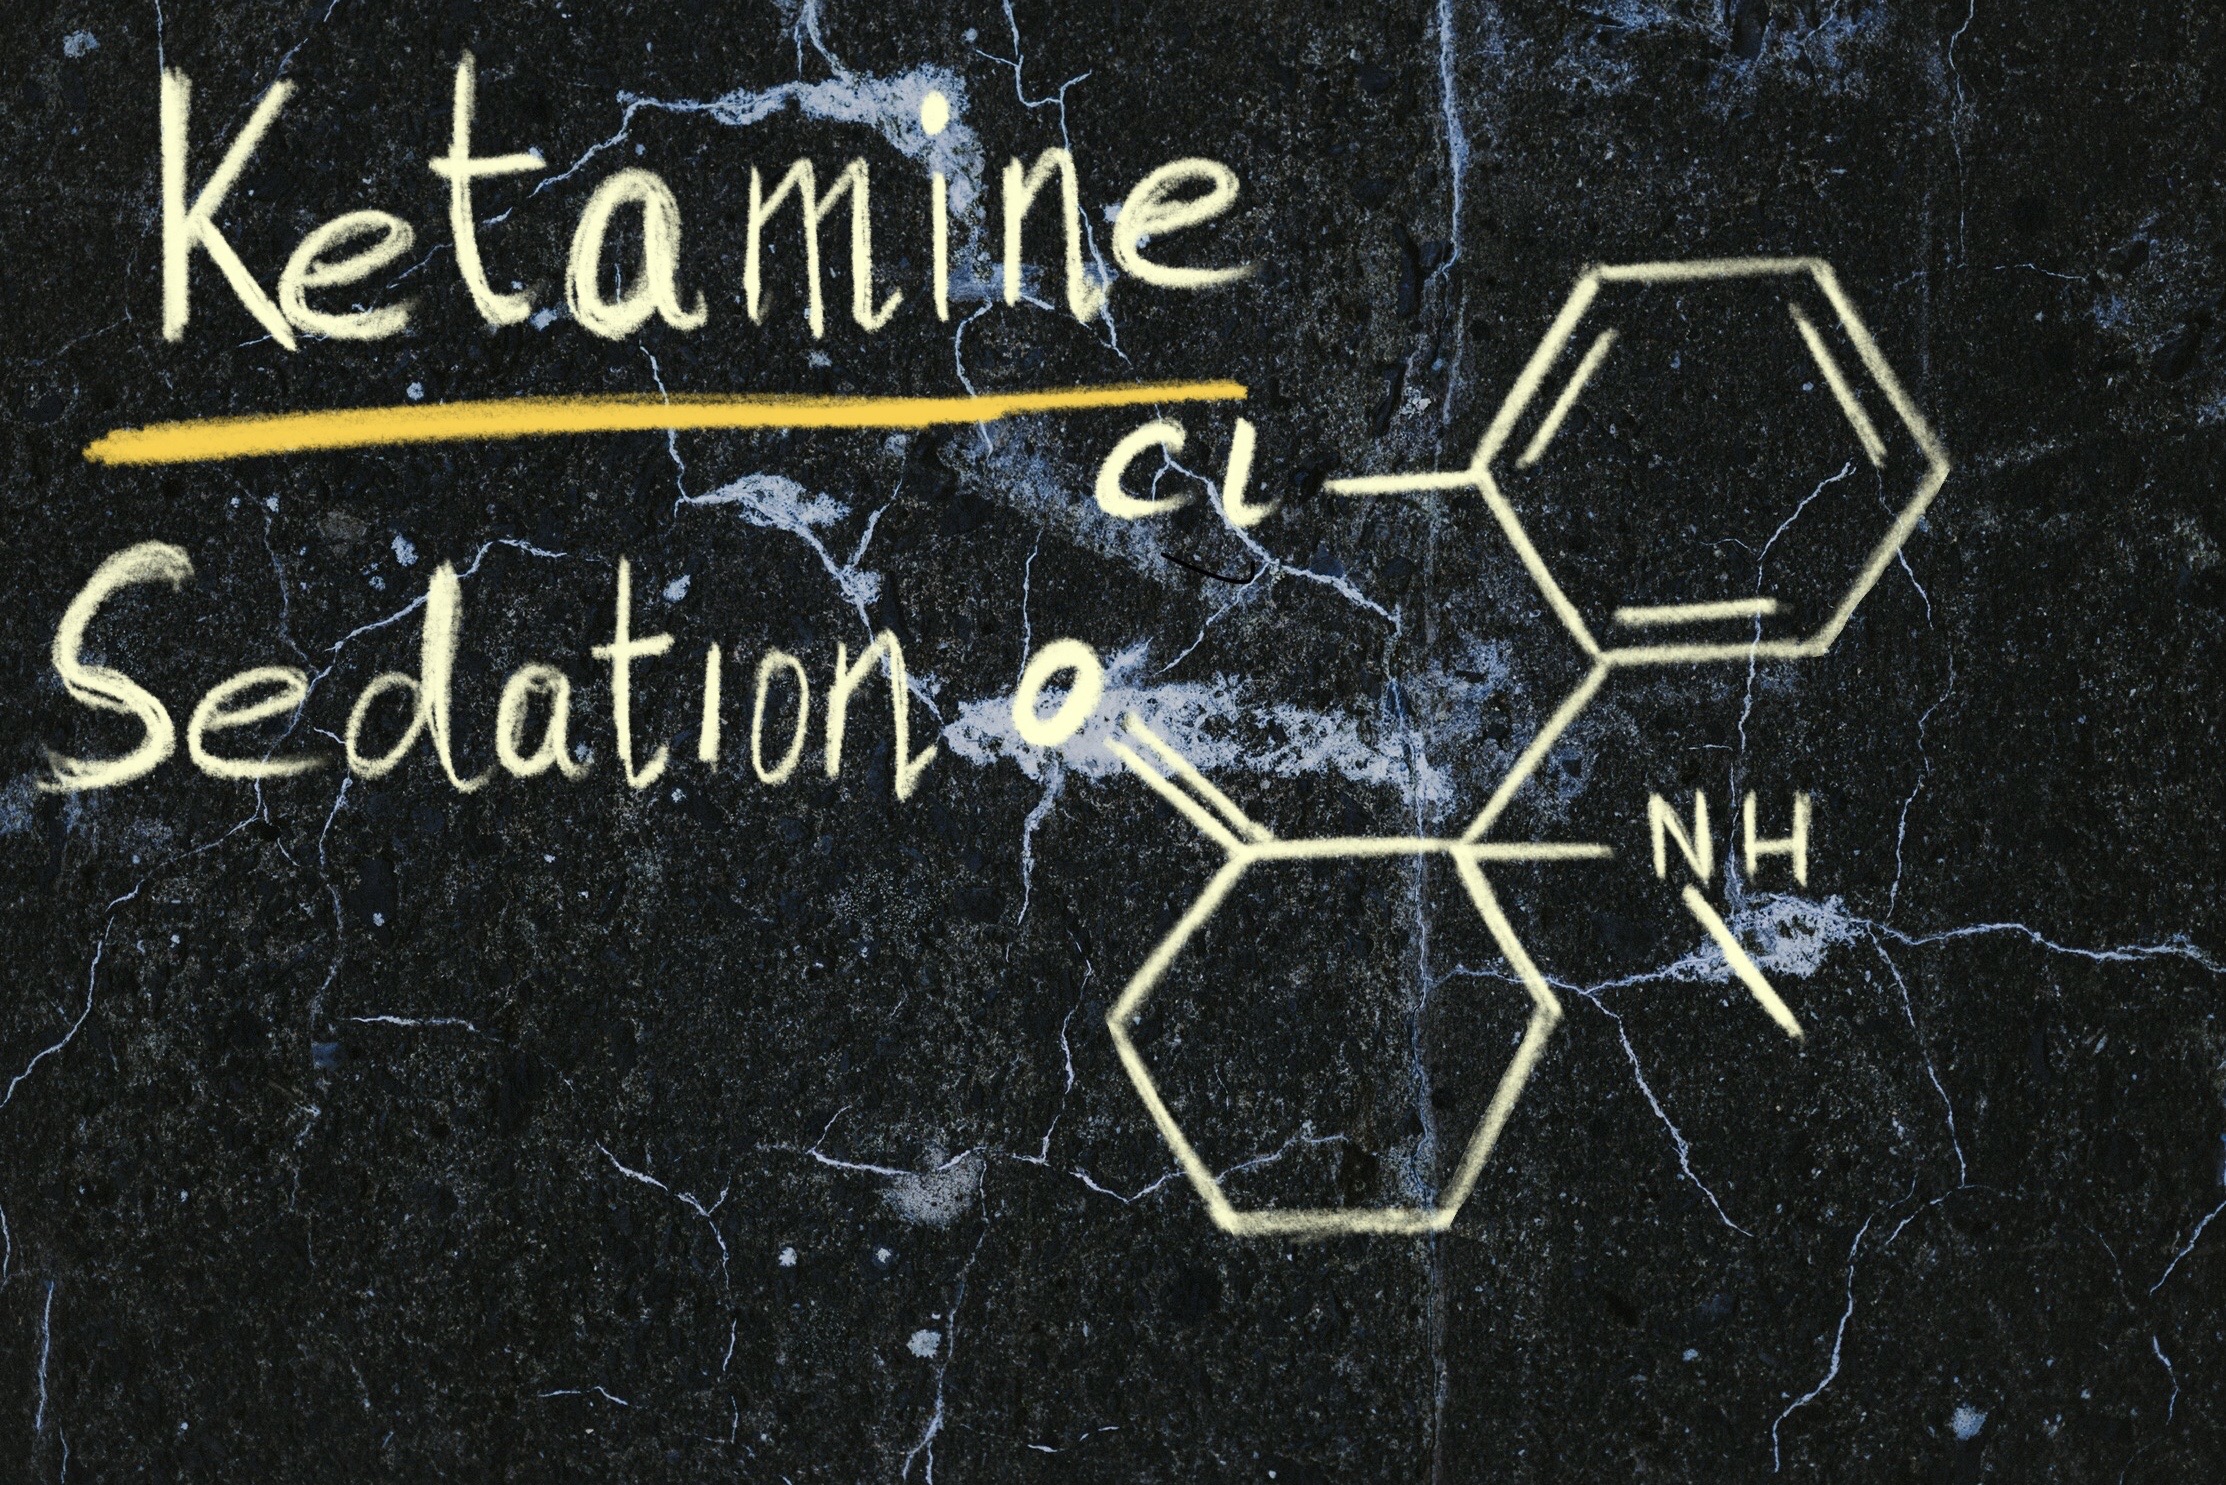 Ketamine
Cl
Sedation
O
NH